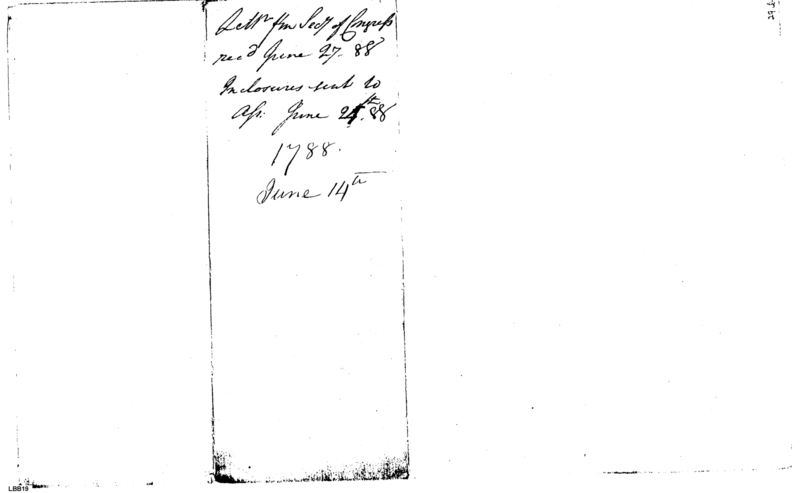 Lettr fm Secy of Congress
rec'd June 27. 88
Inclosures sent to
Ass. June 2 th. 88
1788.
June 14th
LBB19